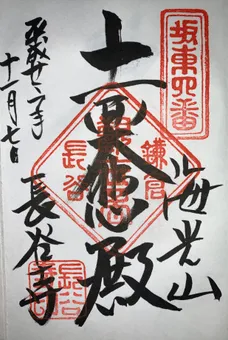 坂東四番
海光山
十一面大悲殿
鎌倉
長谷
長谷寺
平成廿二年
十一月七日